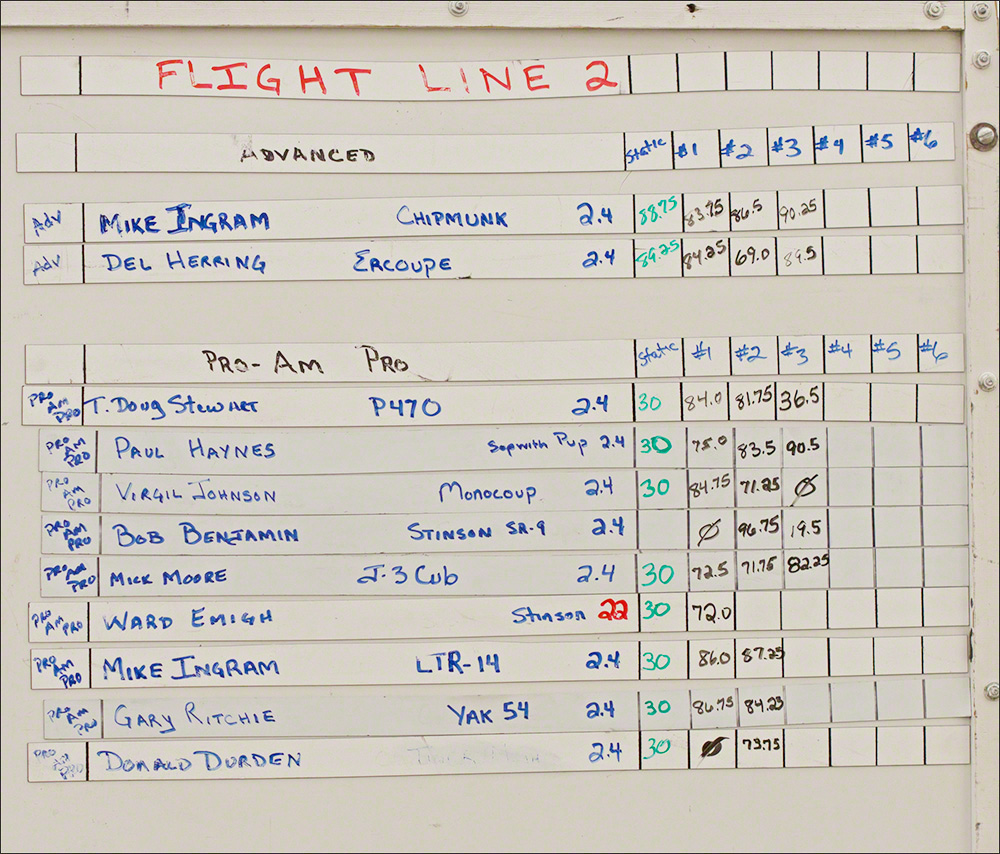 FLIGHT LINE 2
ADVANCED Static #1 #2 #3 #4 #5 #6
Adv MIKE INGRAM CHIPMUNK 2.4 88.75 83.75 86.5 90.25
Adv DEL HERRING ERCOUPE 2.4 89.25 84.25 69.0 89.5
PRO-AM PRO Static #1 #2 #3 #4 #5 #6
PRO AM PRO T. DOUG STEWART P470 2.4 30 84.0 81.75 36.5
PRO AM PRO PAUL HAYNES Sopwith Pup 2.4 30 75.0 83.5 90.5
PRO AM PRO VIRGIL JOHNSON MONOCOUP 2.4 30 84.75 71.25 Ø
PRO AM PRO BOB BENJAMIN STINSON SR-9 2.4 Ø 96.75 19.5
PRO AM PRO MICK MOORE J-3 CUB 2.4 30 72.5 71.75 82.25
PRO AM PRO WARD EMIGH Stinson 22 30 72.0
PRO AM PRO MIKE INGRAM LTR-14 2.4 30 86.0 87.25
PRO AM PRO GARY RITCHIE YAK 54 2.4 30 86.75 84.25
PRO AM PRO DONALD DURDEN 2.4 30 Ø 73.75